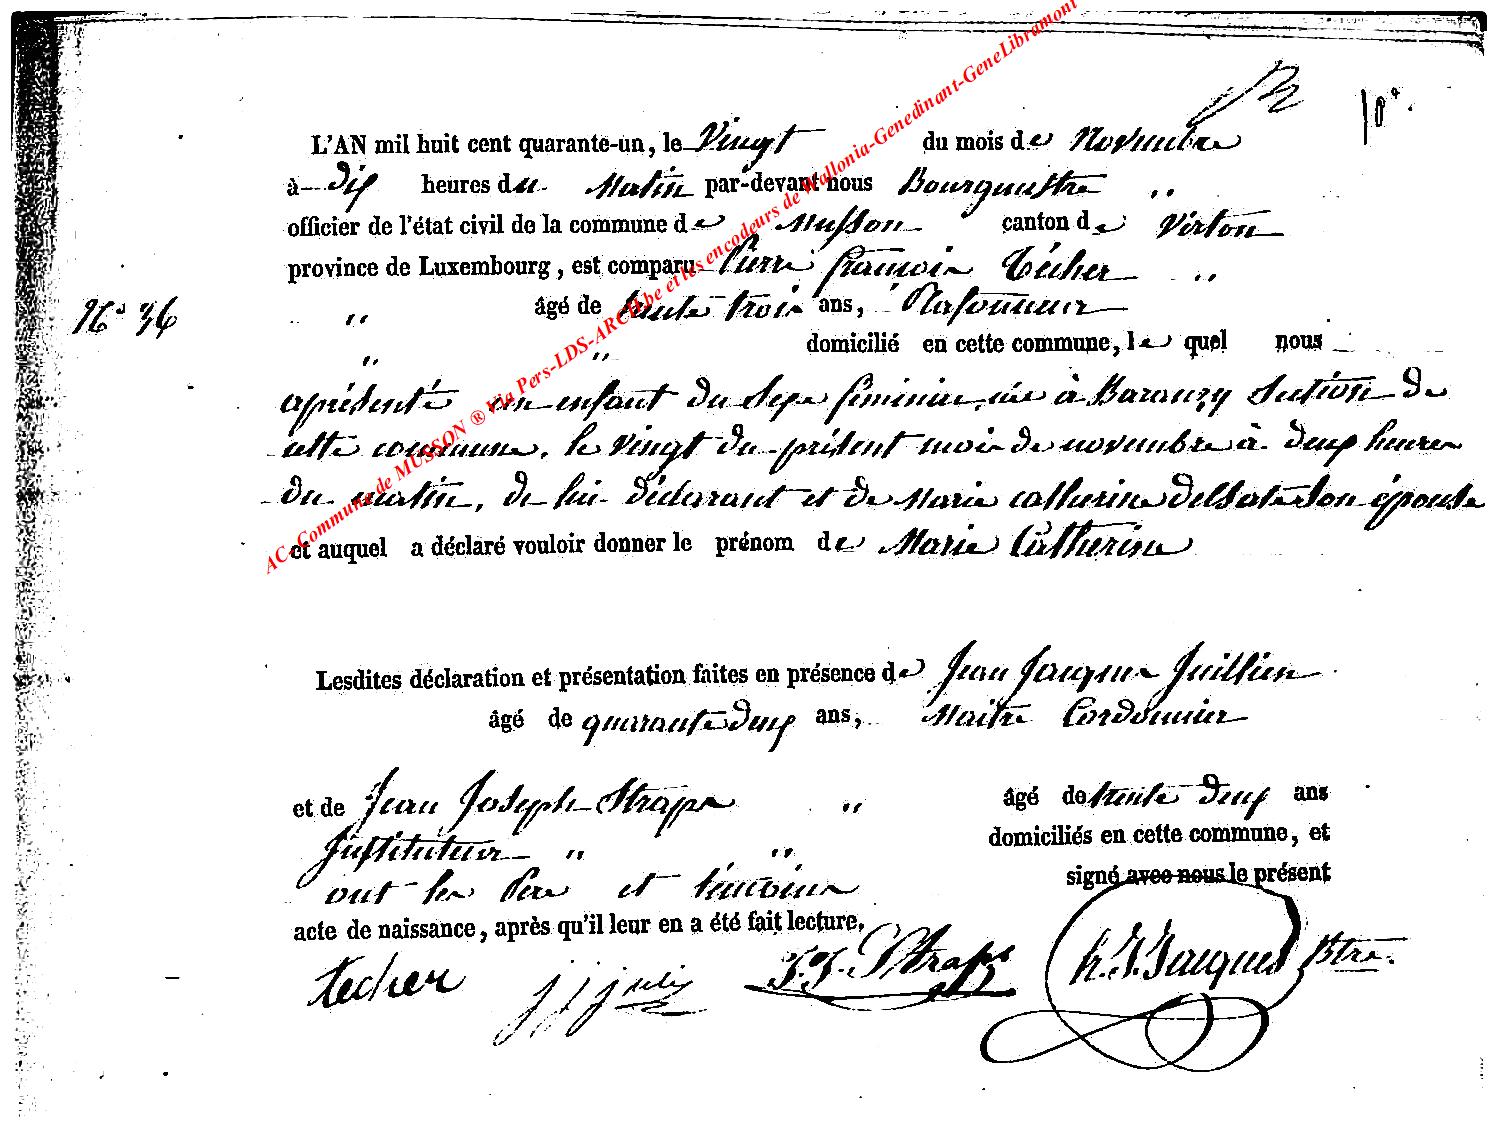 10°.
L'AN mil huit cent quarante-un, le Vingt du mois de Novembre
à dix heures du Matin par-devant nous Bourguestre "
officier de l'état civil de la commune de Musson canton de Virton
province de Luxembourg, est comparu Pierre françois Técher "
N° 36 " âgé de trente trois ans, Plafonneur
" " domicilié en cette commune, le quel nous
aprésenté un enfant du Sexe féminin, née à Baranzy Section de
cette commune, le vingt du présent mois de novembre à deux heures
du matin, de lui déclarant et de Marie catherine Delsate Son épouse
et auquel a déclaré vouloir donner le prénom de Marie Catherine
Lesdites déclaration et présentation faites en présence de Jean Jacques Juillien
âgé de quarante deux ans, Maitre Cordonnier
et de Jean Joseph Straps " âgé de trente deux ans
Instituteur " " domiciliés en cette commune, et
ont les Père et témoins signé avec nous le présent
acte de naissance, après qu'il leur en a été fait lecture.
techer JJ Julien J. J. Straps h. J. Jacques Btre.
AC-Commune de MUSSON ® Via Pers-LDS-ARCH.be et les encodeurs de Wallonia-Genedinant-GeneLibramont